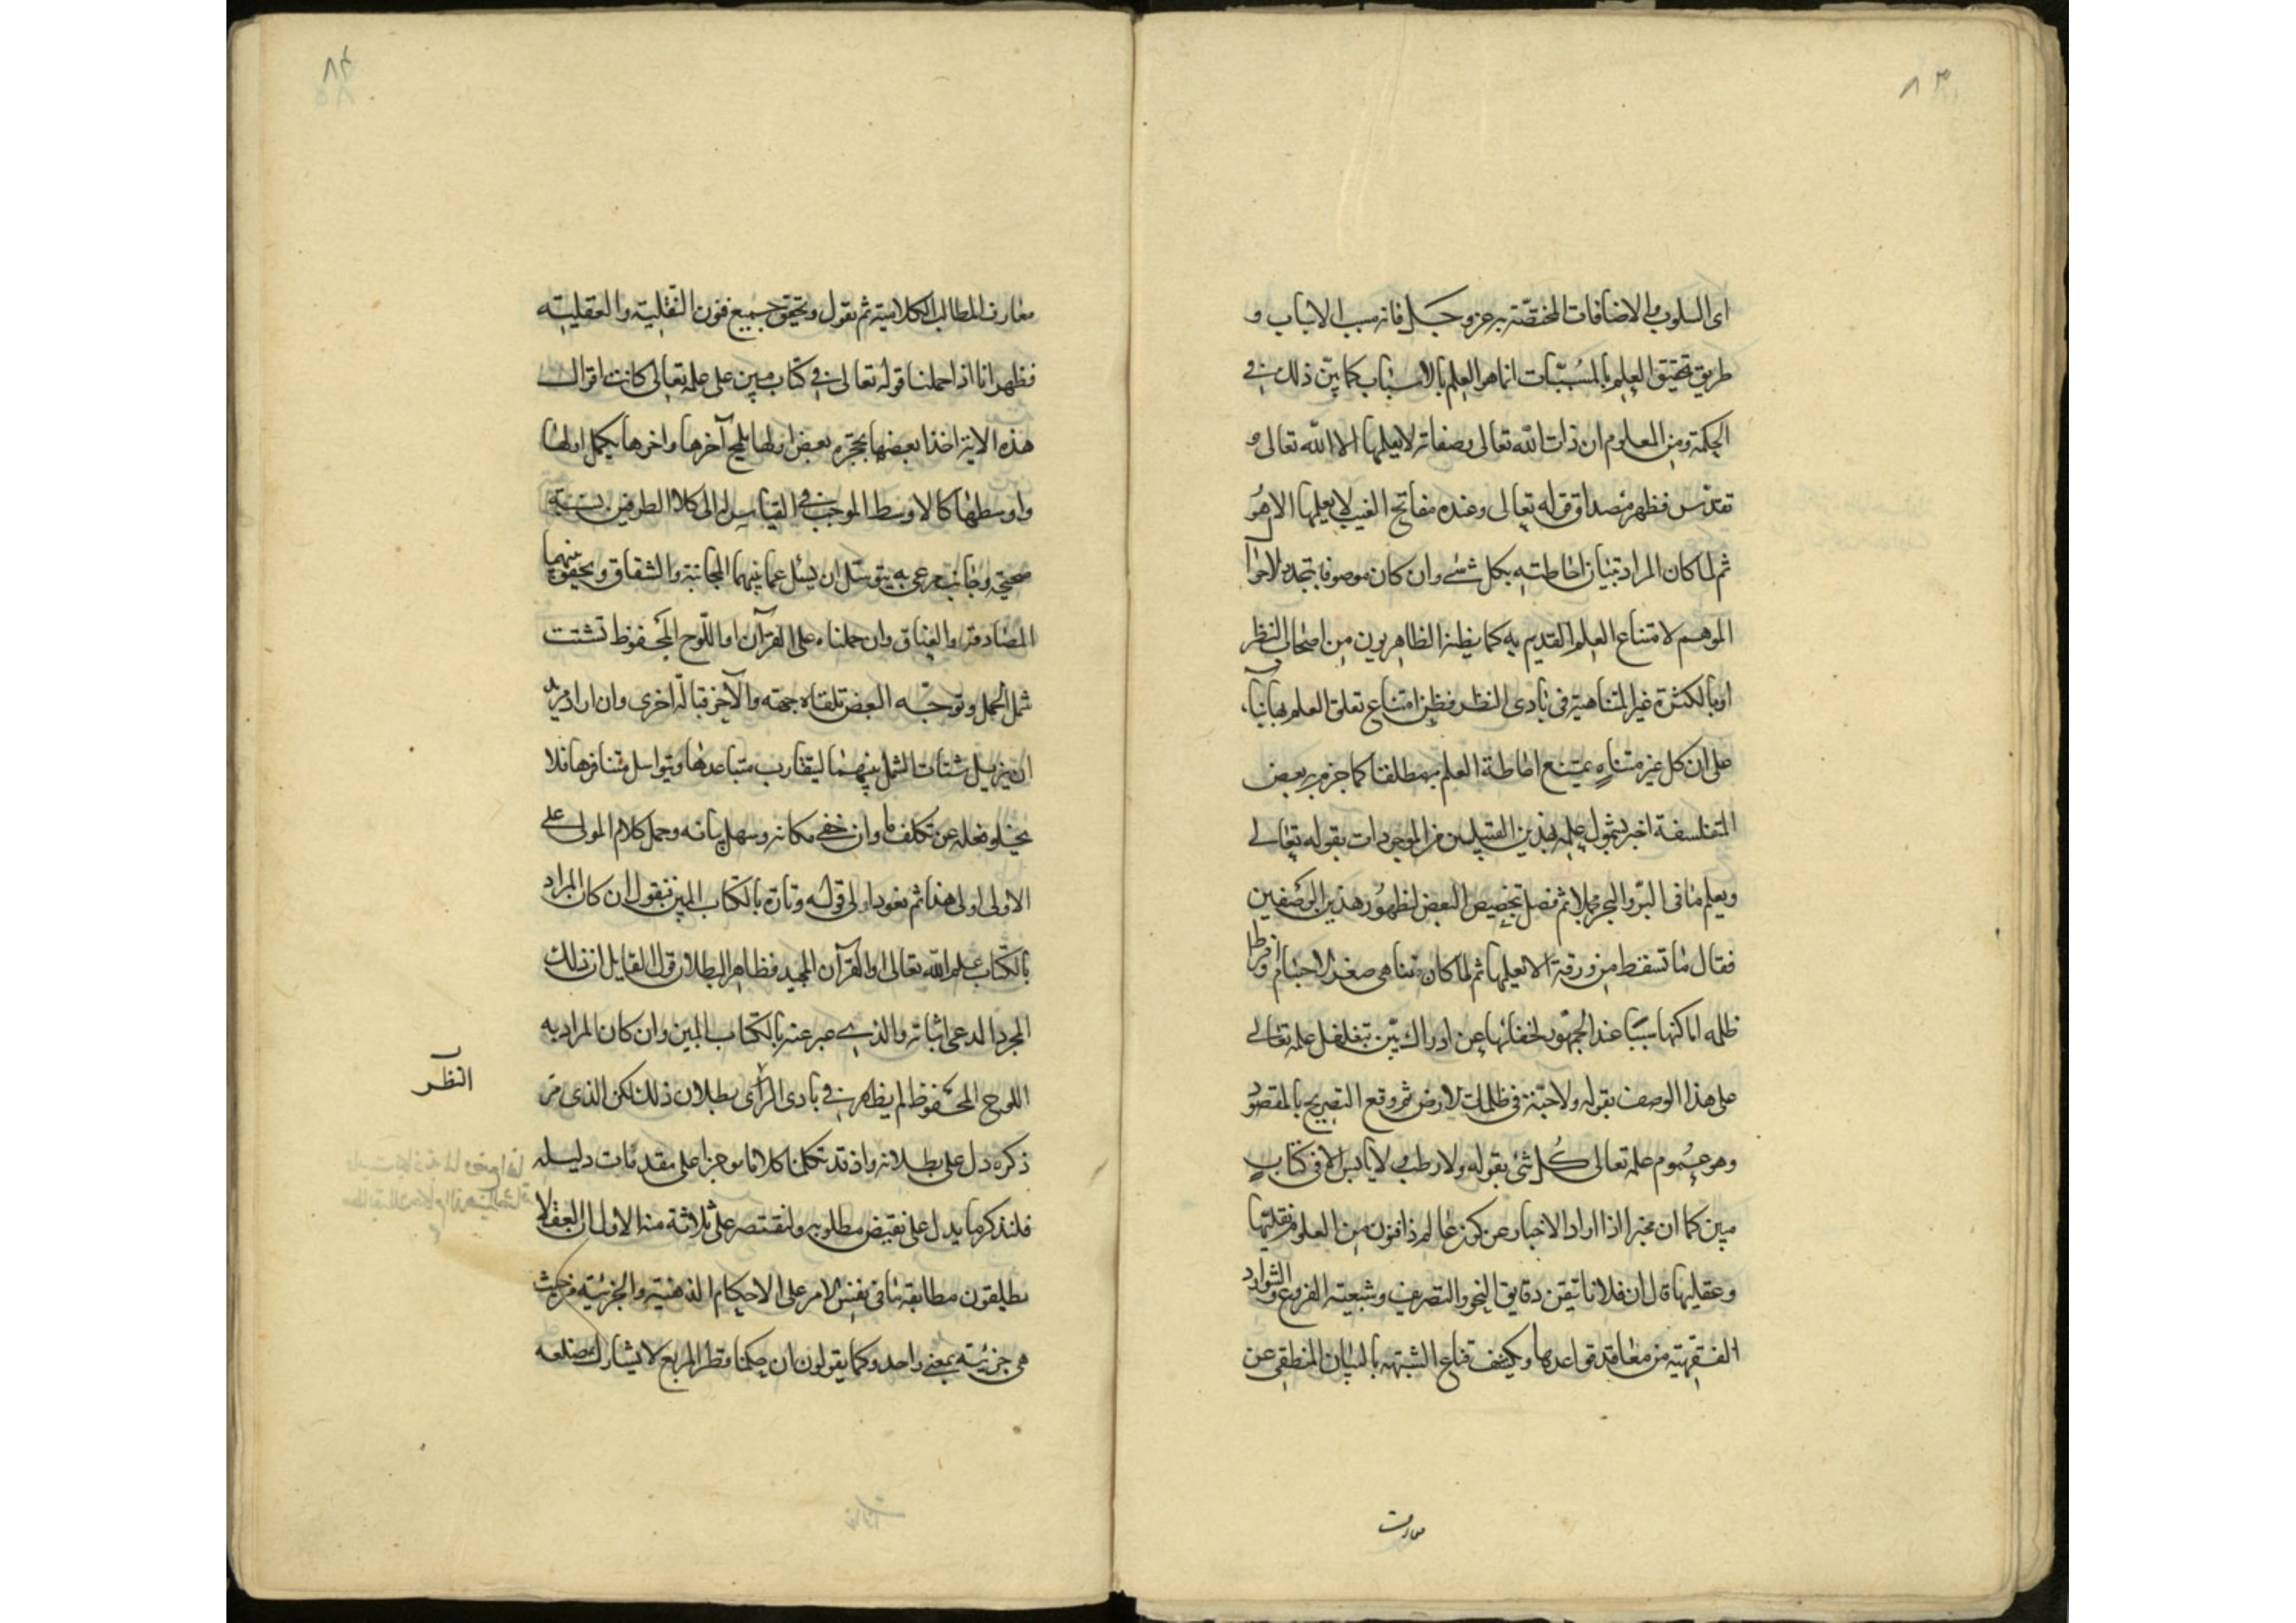 ٨٣
اى السلوب والاضافات المختصّة به عز وجل فانه سبب الاسباب و
طريق تحقيق العلم بالمسببات انما هو العلم بالاسباب كما بيّن ذلك فى
الحكمة ومن المعلوم ان ذات الله تعالى وصفاته لا يعلمها الا الله تعالى و
تقدس فظهر مصداق قوله تعالى وعنده مفاتح الغيب لا يعلمها الا هو
ثم لما كان المراد تبيان احاطته بكل شئ وان كان موصوفا بتجدد الاحوال
الموهم لامتناع العلم القديم به كما يظنه الظاهريون من اصحاب النظر
او بالكثرة غير المتناهية فى بادى النظر فظن امتناع تعلق العلم بها بناء
على ان كل غير متناه يمتنع احاطة العلم به مطلقا كما جزم به بعض
المتفلسفة اخبر بشمول علمه هذين القبيلين من الموجودات بقوله تعالى
ويعلم ما فى البر والبحر مجملا ثم فصل بتخصيص البعض لظهور هذين الوصفين
فقال ما تسقط من ورقة الا يعلمها ثم لما كان تناهى صغر الاجسام وفرط
ظلمه اماكنها سببا عند الجمهور لخفائها عن ادراك بتغلغل علمه تعالى
على هذا الوصف بقوله ولا حبة فى ظلمات الارض ثم وقع التصريح بالمقصود
وهو عموم علمه تعالى كل شئ بقوله ولا رطب ولا يابس الا فى كتاب
مبين كما ان مخبرا اذا اراد الاخبار عن كون عالم ذا فنون من العلوم نقليتها
وعقليتها قال ان فلانا تيقن دقايق النحو والتصريف وشعبية الفروع والشوارد
الفقهية من معاقد قواعدها ويكشف قناع الشبهة بالبيان المنطقى عن
معارف
٨٤
معارف المطالب الكلامية ثم نقول وتحقق جميع فنون النقلية والعقلية
فظهر انا اذا حملنا قوله تعالى فى كتاب مبين على علمه تعالى كانت اقوال
هذه الاية اخذا بعضها بحجزة بعض اولها يلمح آخرها واخرها يكمل اولها
واوسطها كالاوسط الموجب فى القياس له الى كلا الطرفين نسبة
صحيحة وجانب مرعى به يتوسل ان يسئل عما بينهما المجانبة والشقاق ويحفو بينهما
المصادقة والعناق وان حملناه على القرآن او اللوح المحفوظ تشتت
شمل الجمل وتوجه البعض تلقاء جهته والآخر قبالة اخرى وان اراد مريد
ان يزيل شتات الشمل بينهما ليتقارب متباعدها ويتواسل متنافرها فلا
يخلو فعله عن تكلف ما وان خفى مكانه وسهل بيانه وحمل كلام المولى على
الاولى اولى هذا ثم نعود الى قوله وتارة بالكتاب المبين فنقول ان كان المراد
بالكتاب علم الله تعالى او القرآن المجيد فظاهر البطلان قول القايل ان ذلك
المجرد المدعى اثباته والذى عبر عنه بالكتاب المبين وان كان المراد به
اللوح المحفوظ لم يظهر فى بادى الراى بطلان ذلك لكن الذى مر
النظر
ذكره دل على بطلانه واذ قد تكلمنا كلاما موجزا على مقدمات دليله
فلنذكر ما يدل على نقيض مطلوبه ولنقتصر على ثلاثة منه الاول ان العقلا
يطلقون مطابقة ما فى نفس الامر على الاحكام الذهنية والجزئية من حيث
هى جزئية بمعنى واحد وكما يقولون ان حكمنا وقطر المربع لا يشارك ضلعه